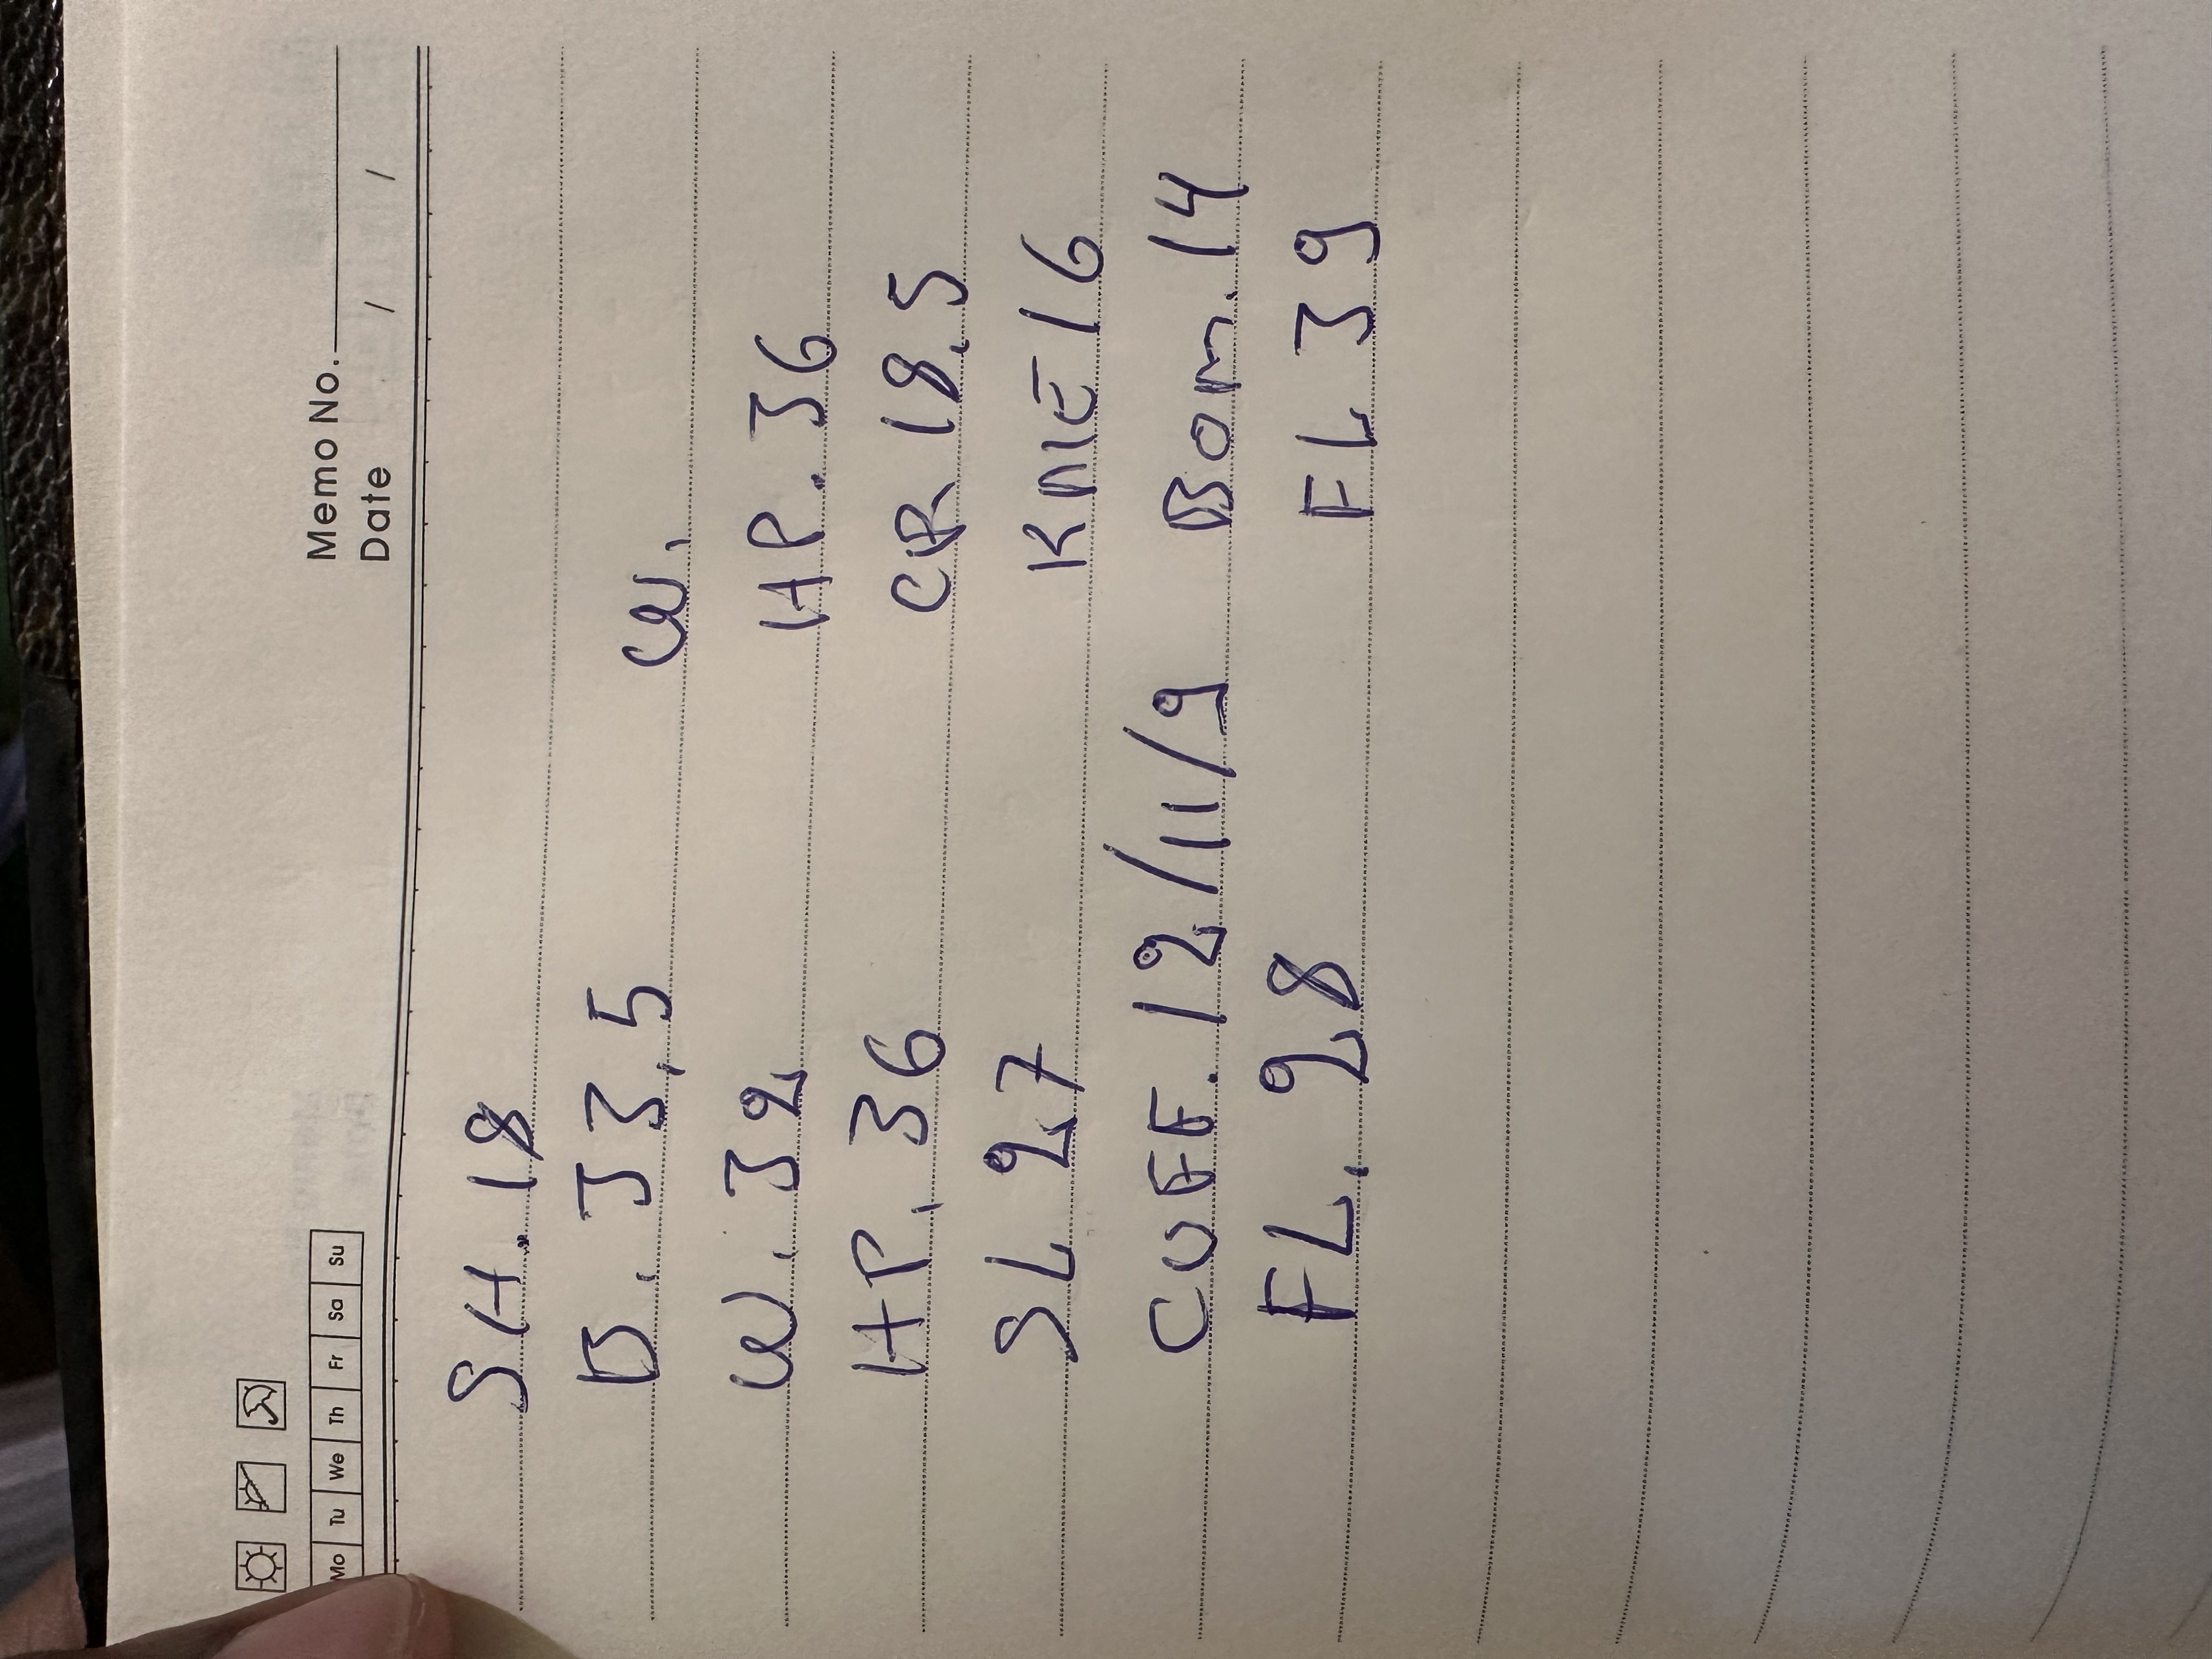 Mo Tu We Th Fr Sa Su
Memo No.
Date / /
SH. 18
B. 33,5
W. 32
HP. 36
SL 27
CUFF. 12/11/9
FL. 28
W.
HP. 36
CR 18.5
KNIE 16
Bom. 14
FL 39